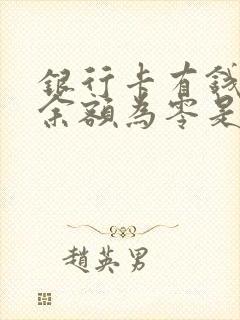 銀行卡有錢
余額為零是
趙英男